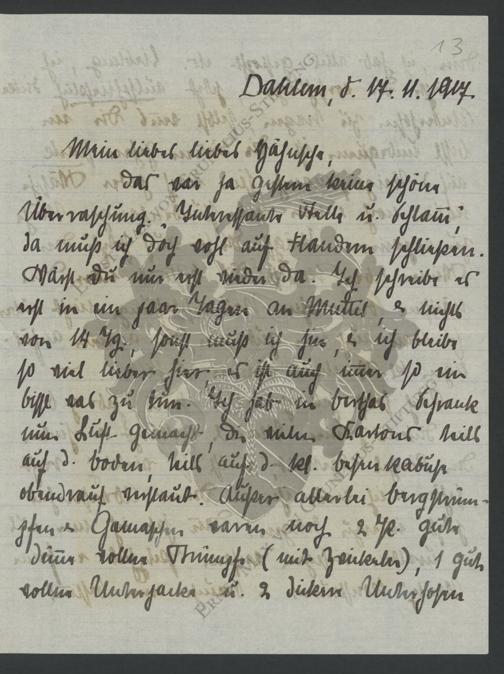 13
Dahlem, d. 17. 11. 1917.
Mein liebes liebes Hähnsche,
das war ja gestern keine schöne
Überraschung. "Interessante Stelle u. Schlamm",
da muß ich doch wohl auf Flandern schließen.
Wärst du nur erst wieder da. Ich schreibe es
erst in ein paar Tagen an Muttel, u. nichts
von 14 Tg., sonst muß ich hin, u. ich bleibe
so viel lieber hier, es ist auch immer so ein
bißl was zu tun. Ich hab in Berthas Schrank
nun Luft gemacht. Die vielen Kartons teils
auf d. Boden, teils auf d. kl.
obendrauf verstaut. Außer allerlei Bergstrüm-
pfen u. Gamaschen waren noch 2 P. gute
dünne wollne Strümpfe (mit Zwickeln), 1 gute
wollne Unterjacke u. 2 dickere Unterhosen